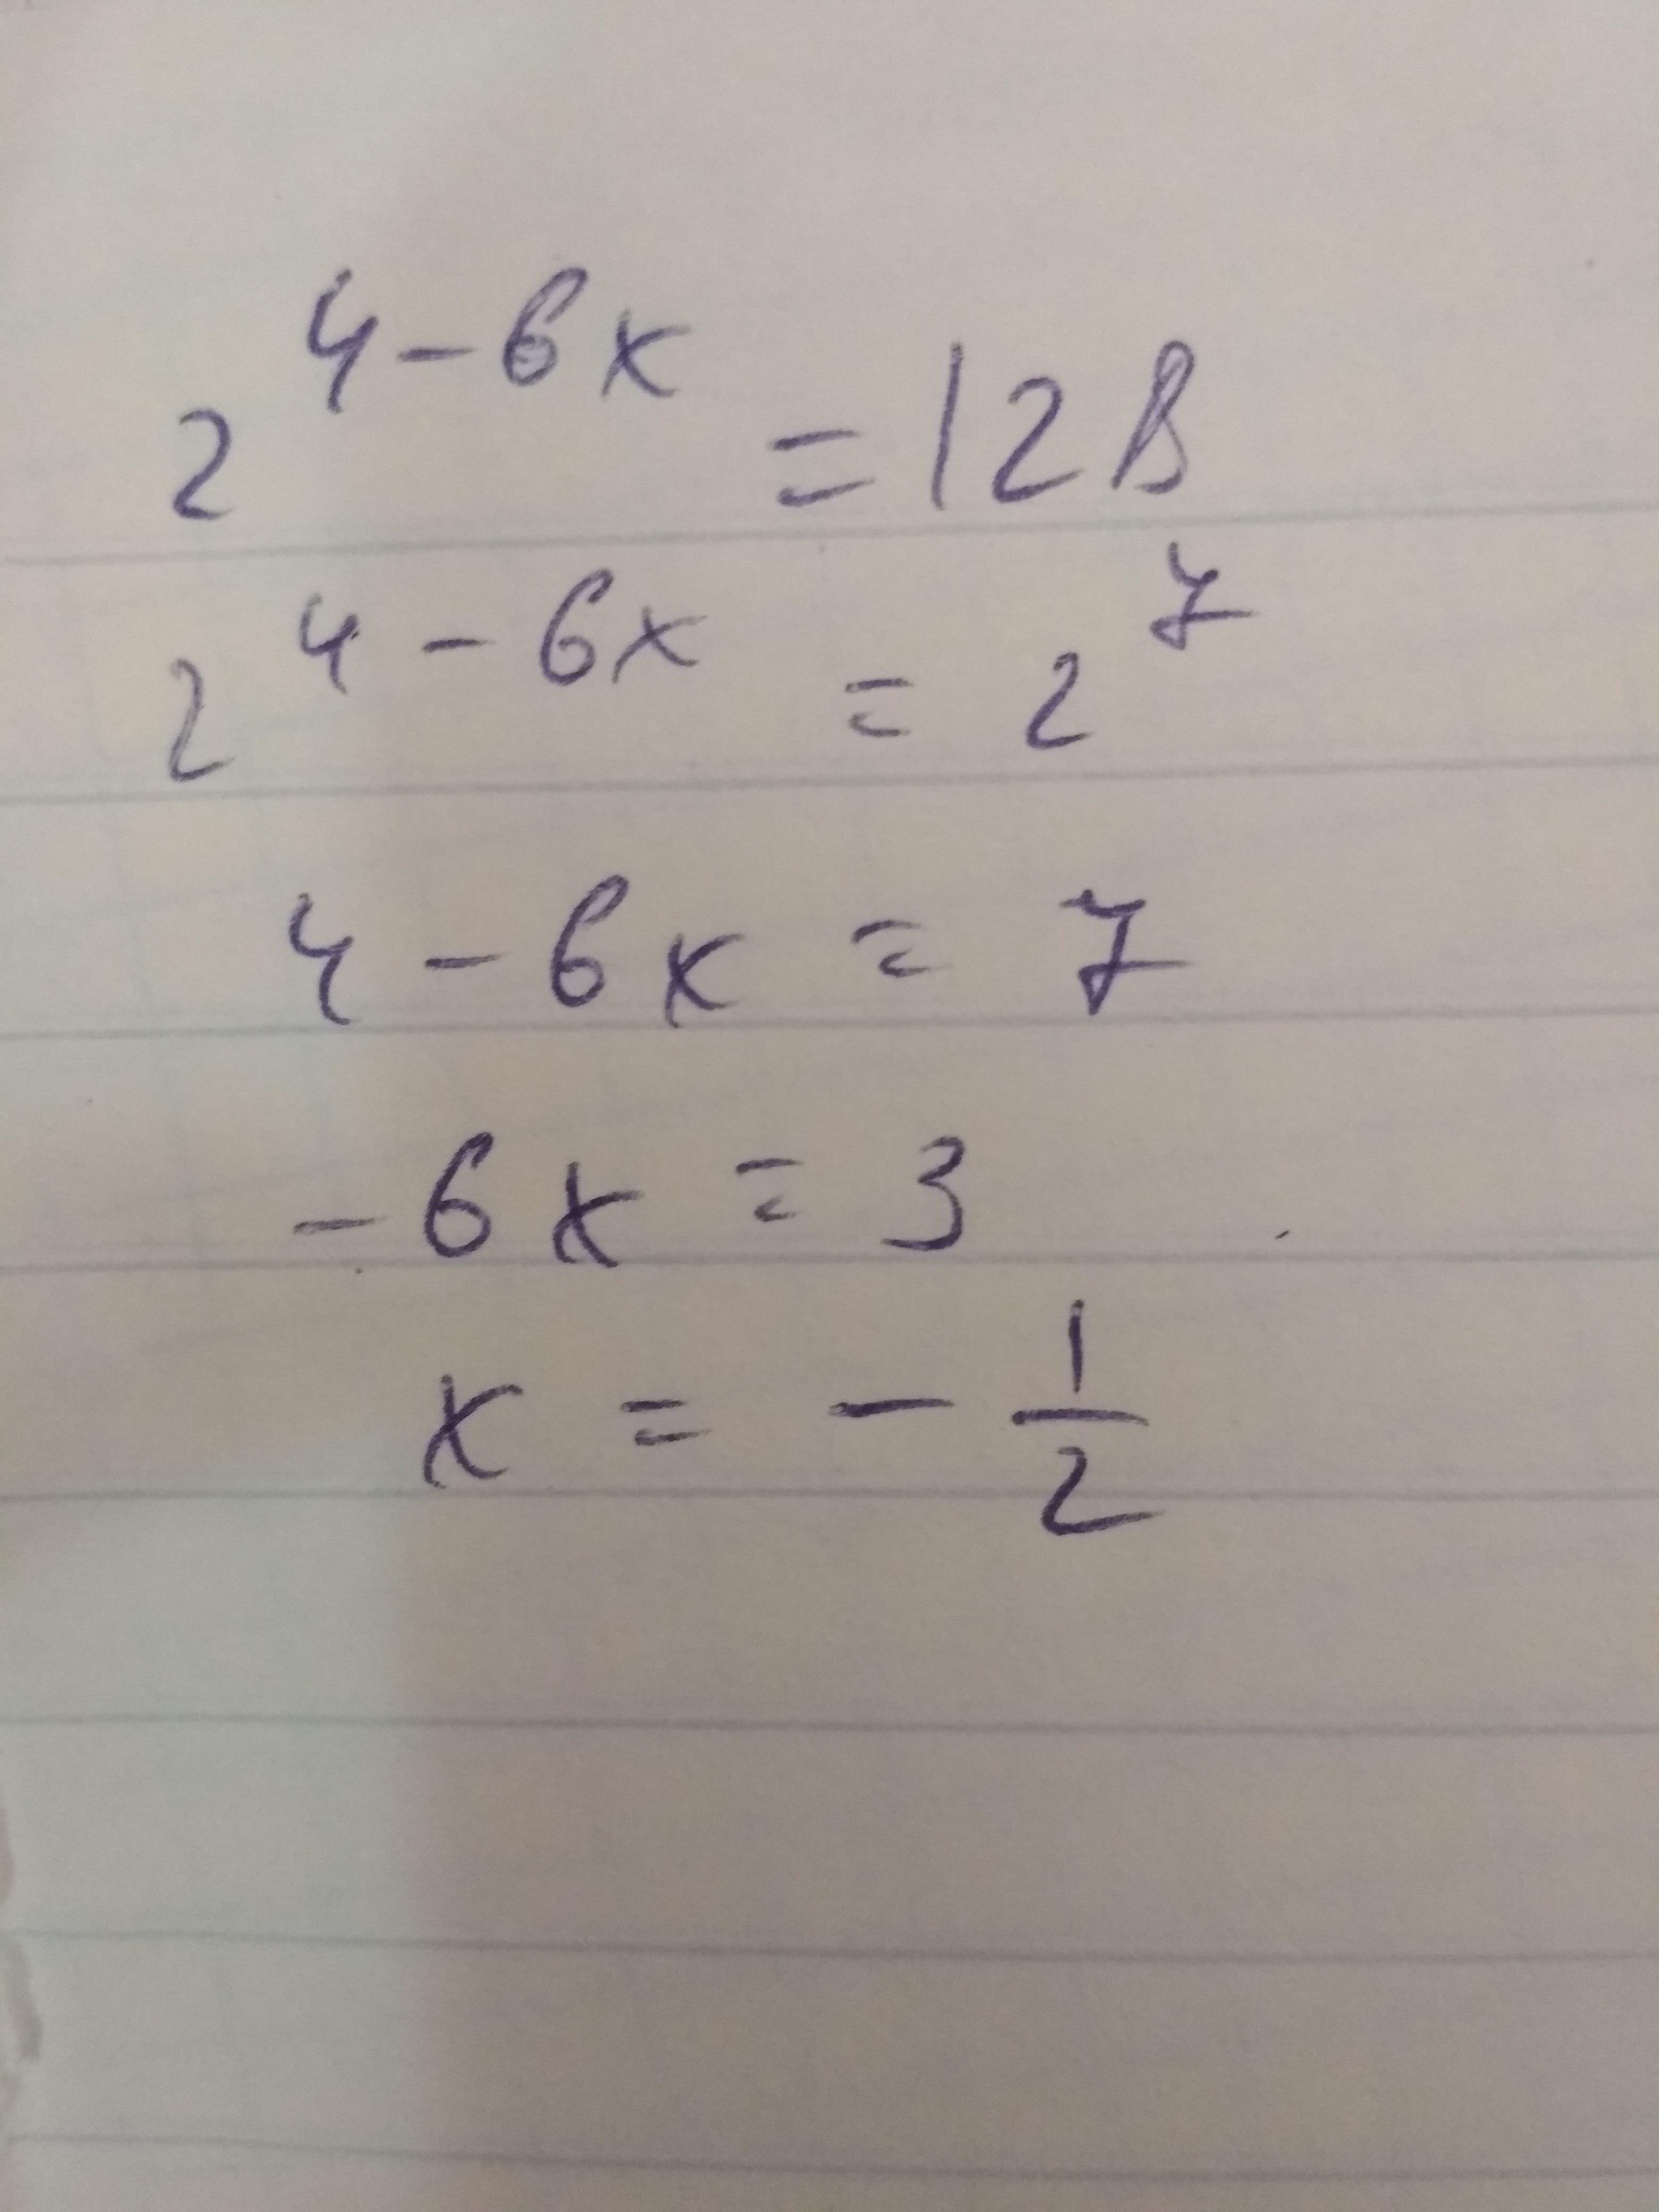 2^{4-6x} = 128
2^{4-6x} = 2^7
4-6x = 7
-6x = 3
x = -\frac{1}{2}